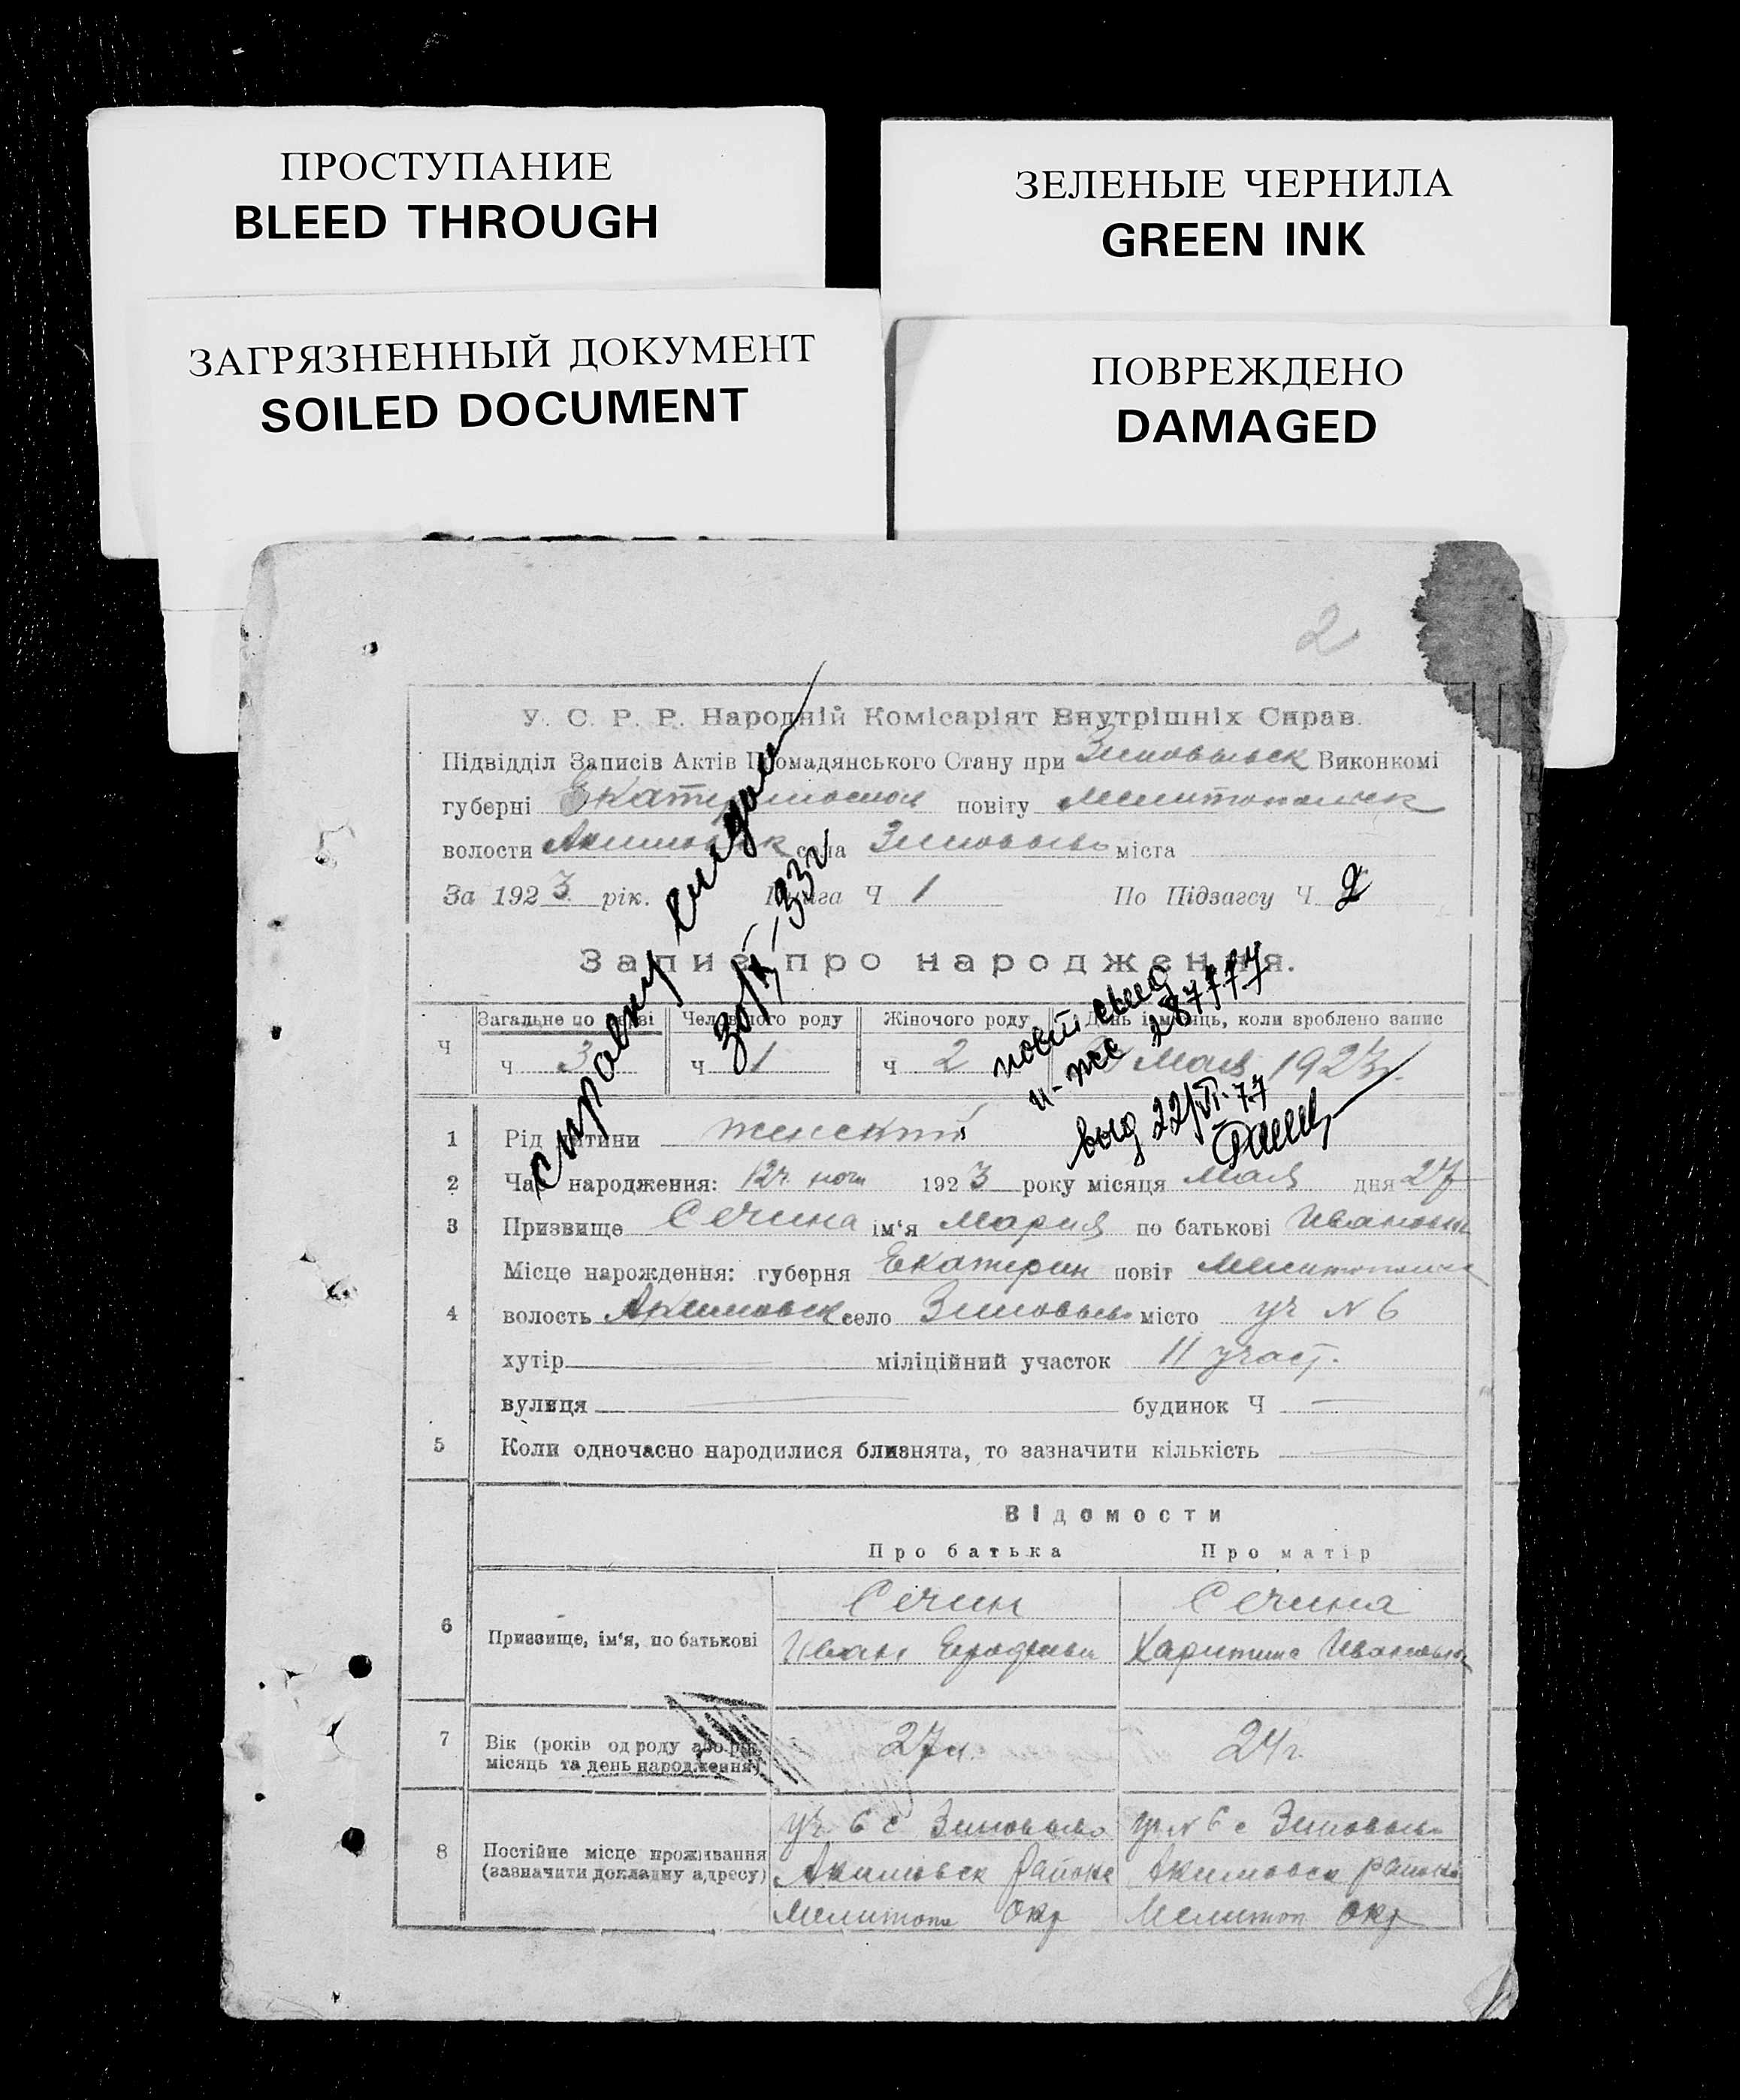 ПРОСТУПАНИЕ
BLEED THROUGH
ЗЕЛЕНЫЕ ЧЕРНИЛА
GREEN INK
ЗАГРЯЗНЕННЫЙ ДОКУМЕНТ
SOILED DOCUMENT
ПОВРЕЖДЕНО
DAMAGED
2
У. С. Р. Р. Народній Комісаріят Внутрішніх Справ.
Підвідділ Записів Актів Громадянського Стану при Виконкомі
губерні повіту
волости села міста
За 1923 рік. Книга Ч 1 По Підзагсу Ч 2
Запис про народження.
Ч Загальне по черзі Человічого роду Жіночого роду День і місяць, коли зроблено запис
ч 3 ч 1 ч 2 Мая 1923г.
справку
выд 22/VI-77
1 Рід дитини женский
2 Час народження: 12ч. ночи 1923 року місяця Мая дня 27
3 Призвище Сечина ім‘я Мария по батькові Ивановна
Місце нарождення: губерня Екатерин повіт
4 волость Акимовск село місто уч N 6
хутір міліційний участок 11 участ.
вулиця будинок Ч
5 Коли одночасно народилися близнята, то зазначити кількість
Відомости
Про батька Про матір
6 Призвище, ім‘я, по батькові
Сечин Сечина
Иван Харитина Ивановна
7 Вік (років од роду або рік, місяць та день народження)
27л. 24г.
8 Постійне місце проживання (зазначити докладну адресу)
уч. 6 с уч N 6 с
Акимовск района Акимовск района
Мелитоп Окр Мелитоп Окр